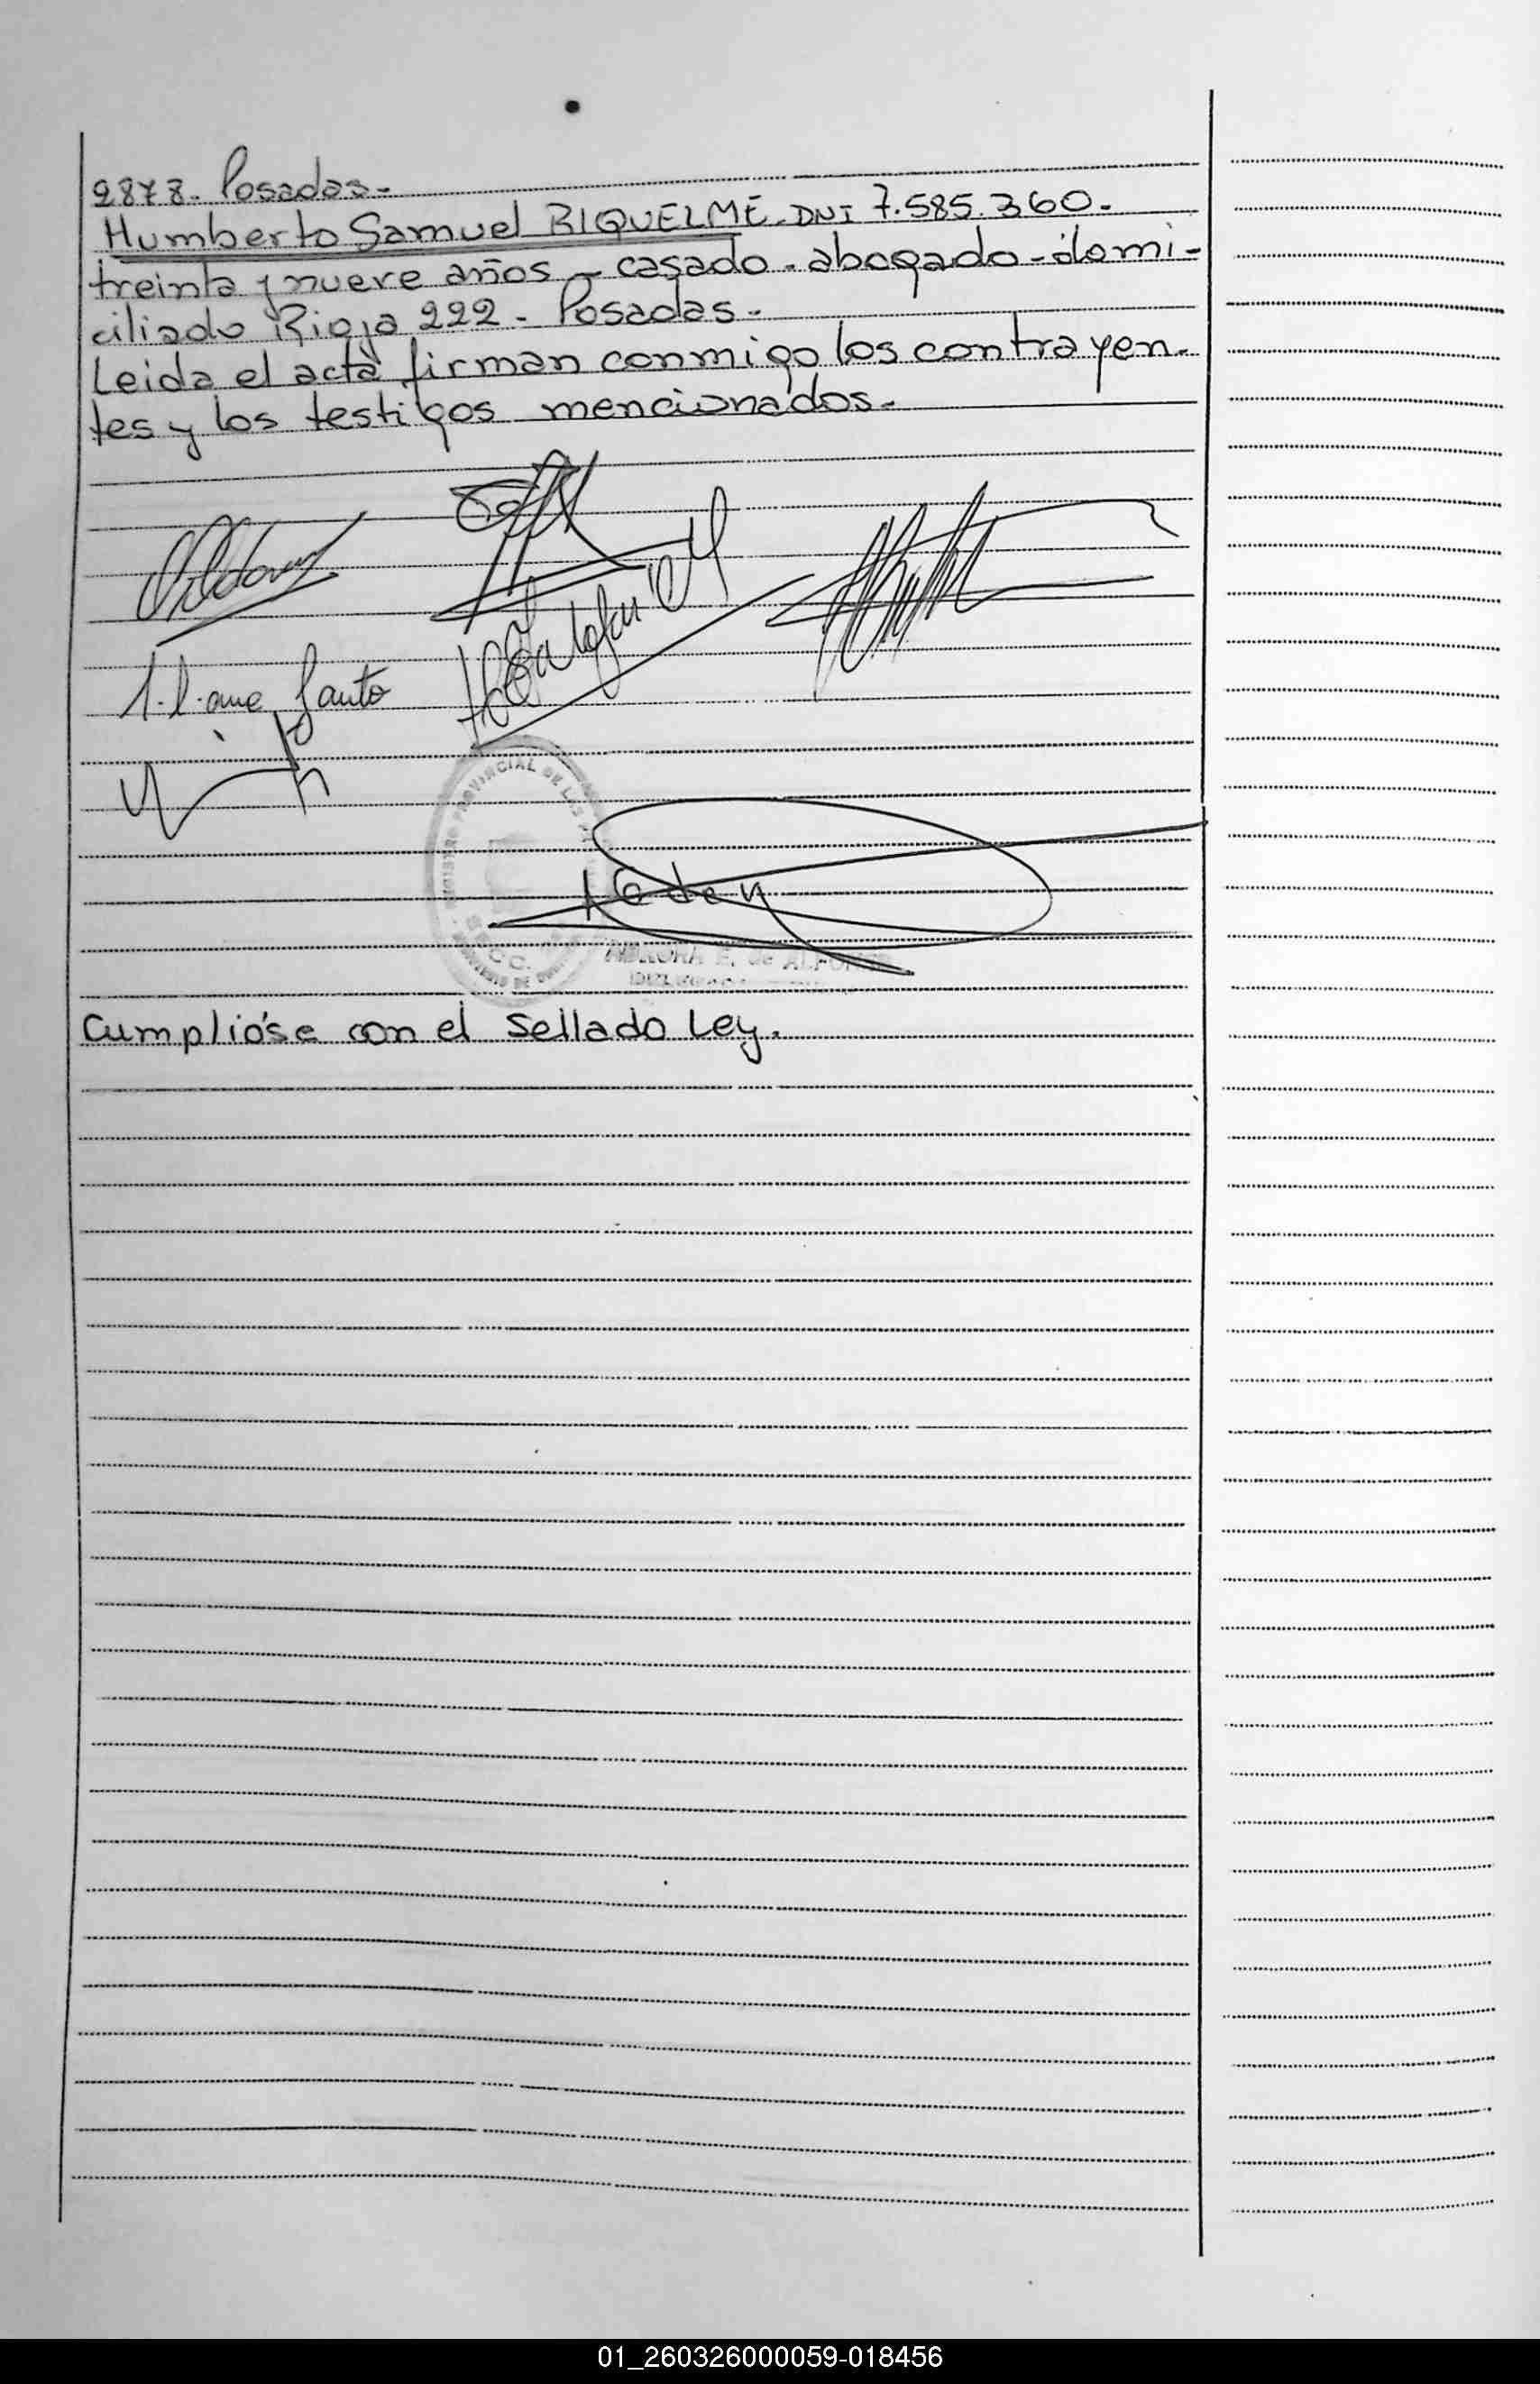 2878. Posadas.-
Humberto Samuel RIQUELME. DNI 7.585.360.-
treinta y nueve años - casado - abogado - domi-
ciliado Rioja 222 - Posadas.-
Leida el acta firman conmigo los contrayen-
tes y los testigos mencionados.-
PROVINCIAL DE LAS
AURORA E. de ALFONSO
Cumplióse con el Sellado Ley.
01_260326000059-018456